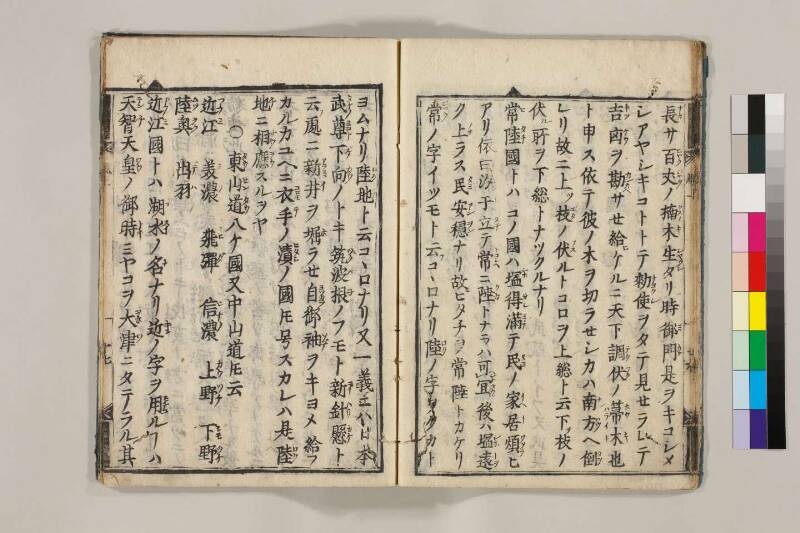 長サ百丈ノ楠木生タリ時御門是ヲキコシメ
シアヤシキコトトテ勅使ヲタテ見セラルヽテ
吉凶ヲ勘サセ給ケルニ天下調伏ノ木也
ト申ス依テ彼ノ木ヲ切ラセシカハ南方ヘ倒
レリ故ニ上ッ枝ノ伏ルトコロヲ上総ト云下ッ枝ノ
伏所ヲ下総トナツクルナリ
常陸國トハコノ國ハ塩得滿テ民ノ家居煩ヒ
アリ依曰海于立テ常ニ陸トナラハ可宜後ハ塩遠
ク上ラス民安穏ナリ故ヒタチヲ常陸トカケリ
常ノ字イツモト云コヽロナリ陸ノ字クカト
ヨムナリ陸地ト云コヽロナリ又一義ニハ日本
武尊下向ノトキ筑波根ノフモト新針ト
云処ニ新井ヲ堀ラセ自御袖ヲキヨメ給フ
カルカユヘニ衣手ノ漬ノ國トモ号スカレハ是陸
地ニ相應スルヲヤ
〇東山道八ケ國又中山道トモ云
近江 美濃 飛彈 信濃 上野 下野
陸奥 出羽
近江國トハ湖水ノ名ナリ近ノ字ヲ用ルヿハ
天智天皇ノ御時ミヤコヲ大津ニタテラル其